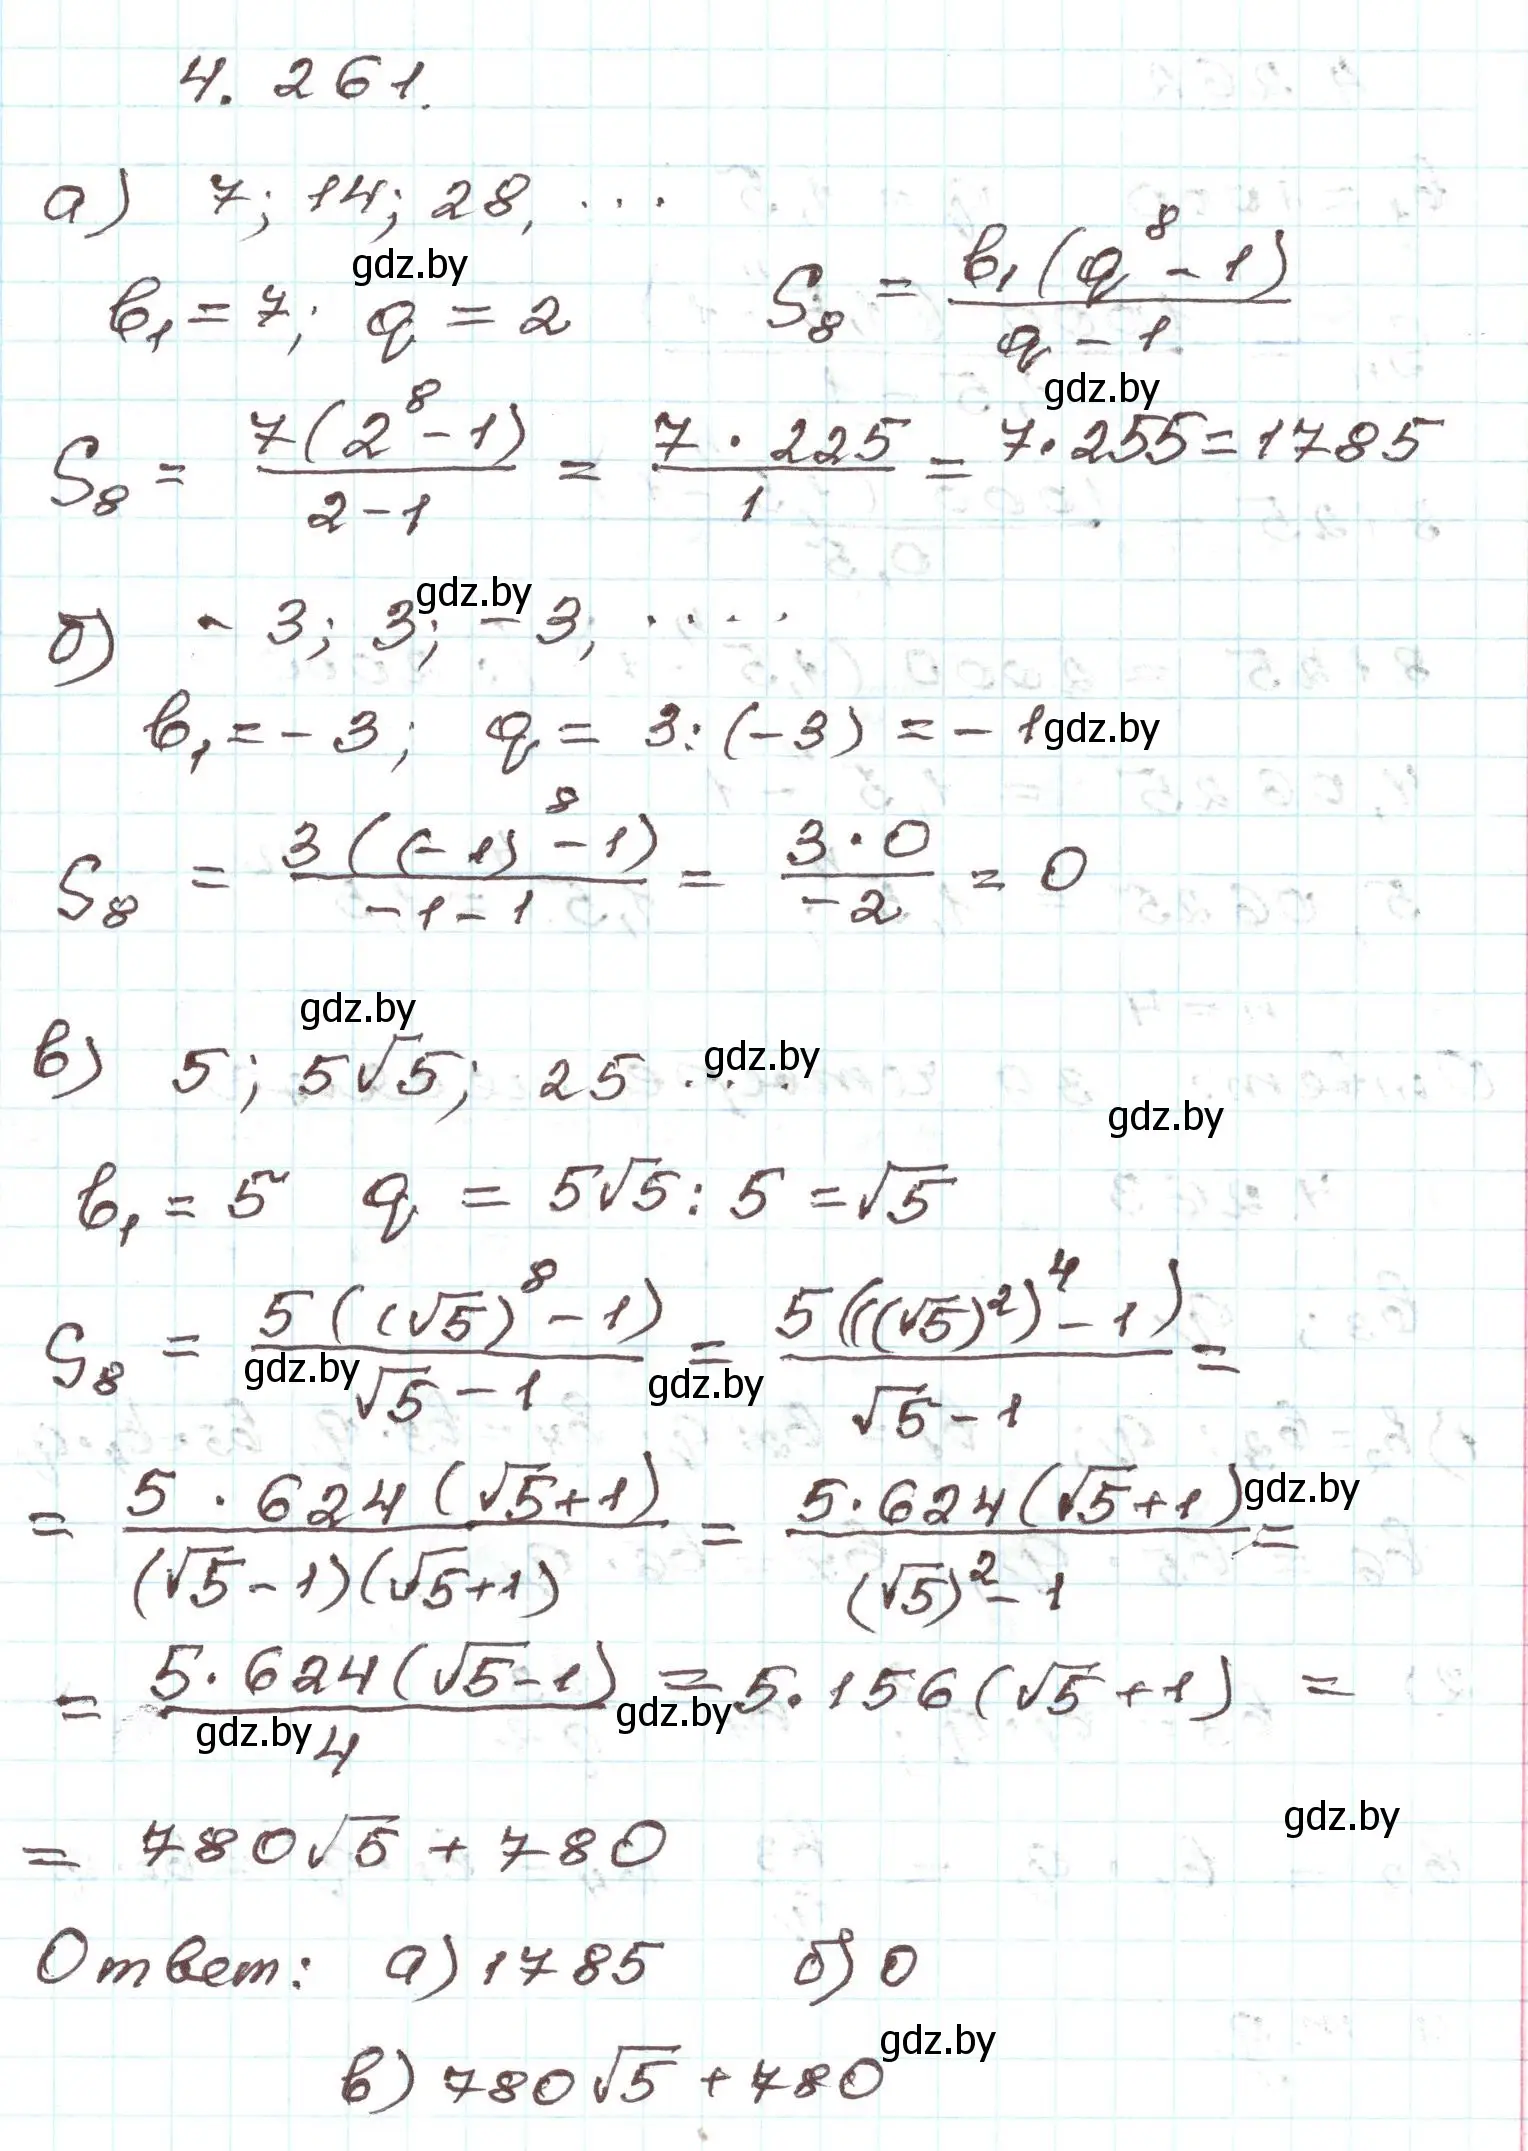 4. 261.
а) 7; 14; 28, ...
gdz.by
b₁ = 7; q = 2 S₈ = b₁(q⁸ - 1) / q - 1
gdz.by
S₈ = 7(2⁸ - 1) / 2 - 1 = 7 · 225 / 1 = 7 · 255 = 1785
gdz.by
б) - 3; 3; - 3; ....
b₁ = - 3; q = 3 : (-3) = - 1 gdz.by
S₈ = 3((-1)⁸ - 1) / -1 - 1 = 3 · 0 / -2 = 0
gdz.by
в) 5; 5√5; 25 ... gdz.by
gdz.by
b₁ = 5 q = 5√5 : 5 = √5
S₈ = 5((√5)⁸ - 1) / √5 - 1 = 5(((√5)²)⁴ - 1) / √5 - 1 =
gdz.by gdz.by
= 5 · 624(√5 + 1) / (√5 - 1)(√5 + 1) = 5 · 624(√5 + 1) / (√5)² - 1 =
gdz.by
= 5 · 624(√5 - 1) / 4 = 5 · 156(√5 + 1) =
gdz.by gdz.by
gdz.by
= 780√5 + 780
Ответ: а) 1785 б) 0
gdz.by
в) 780√5 + 780